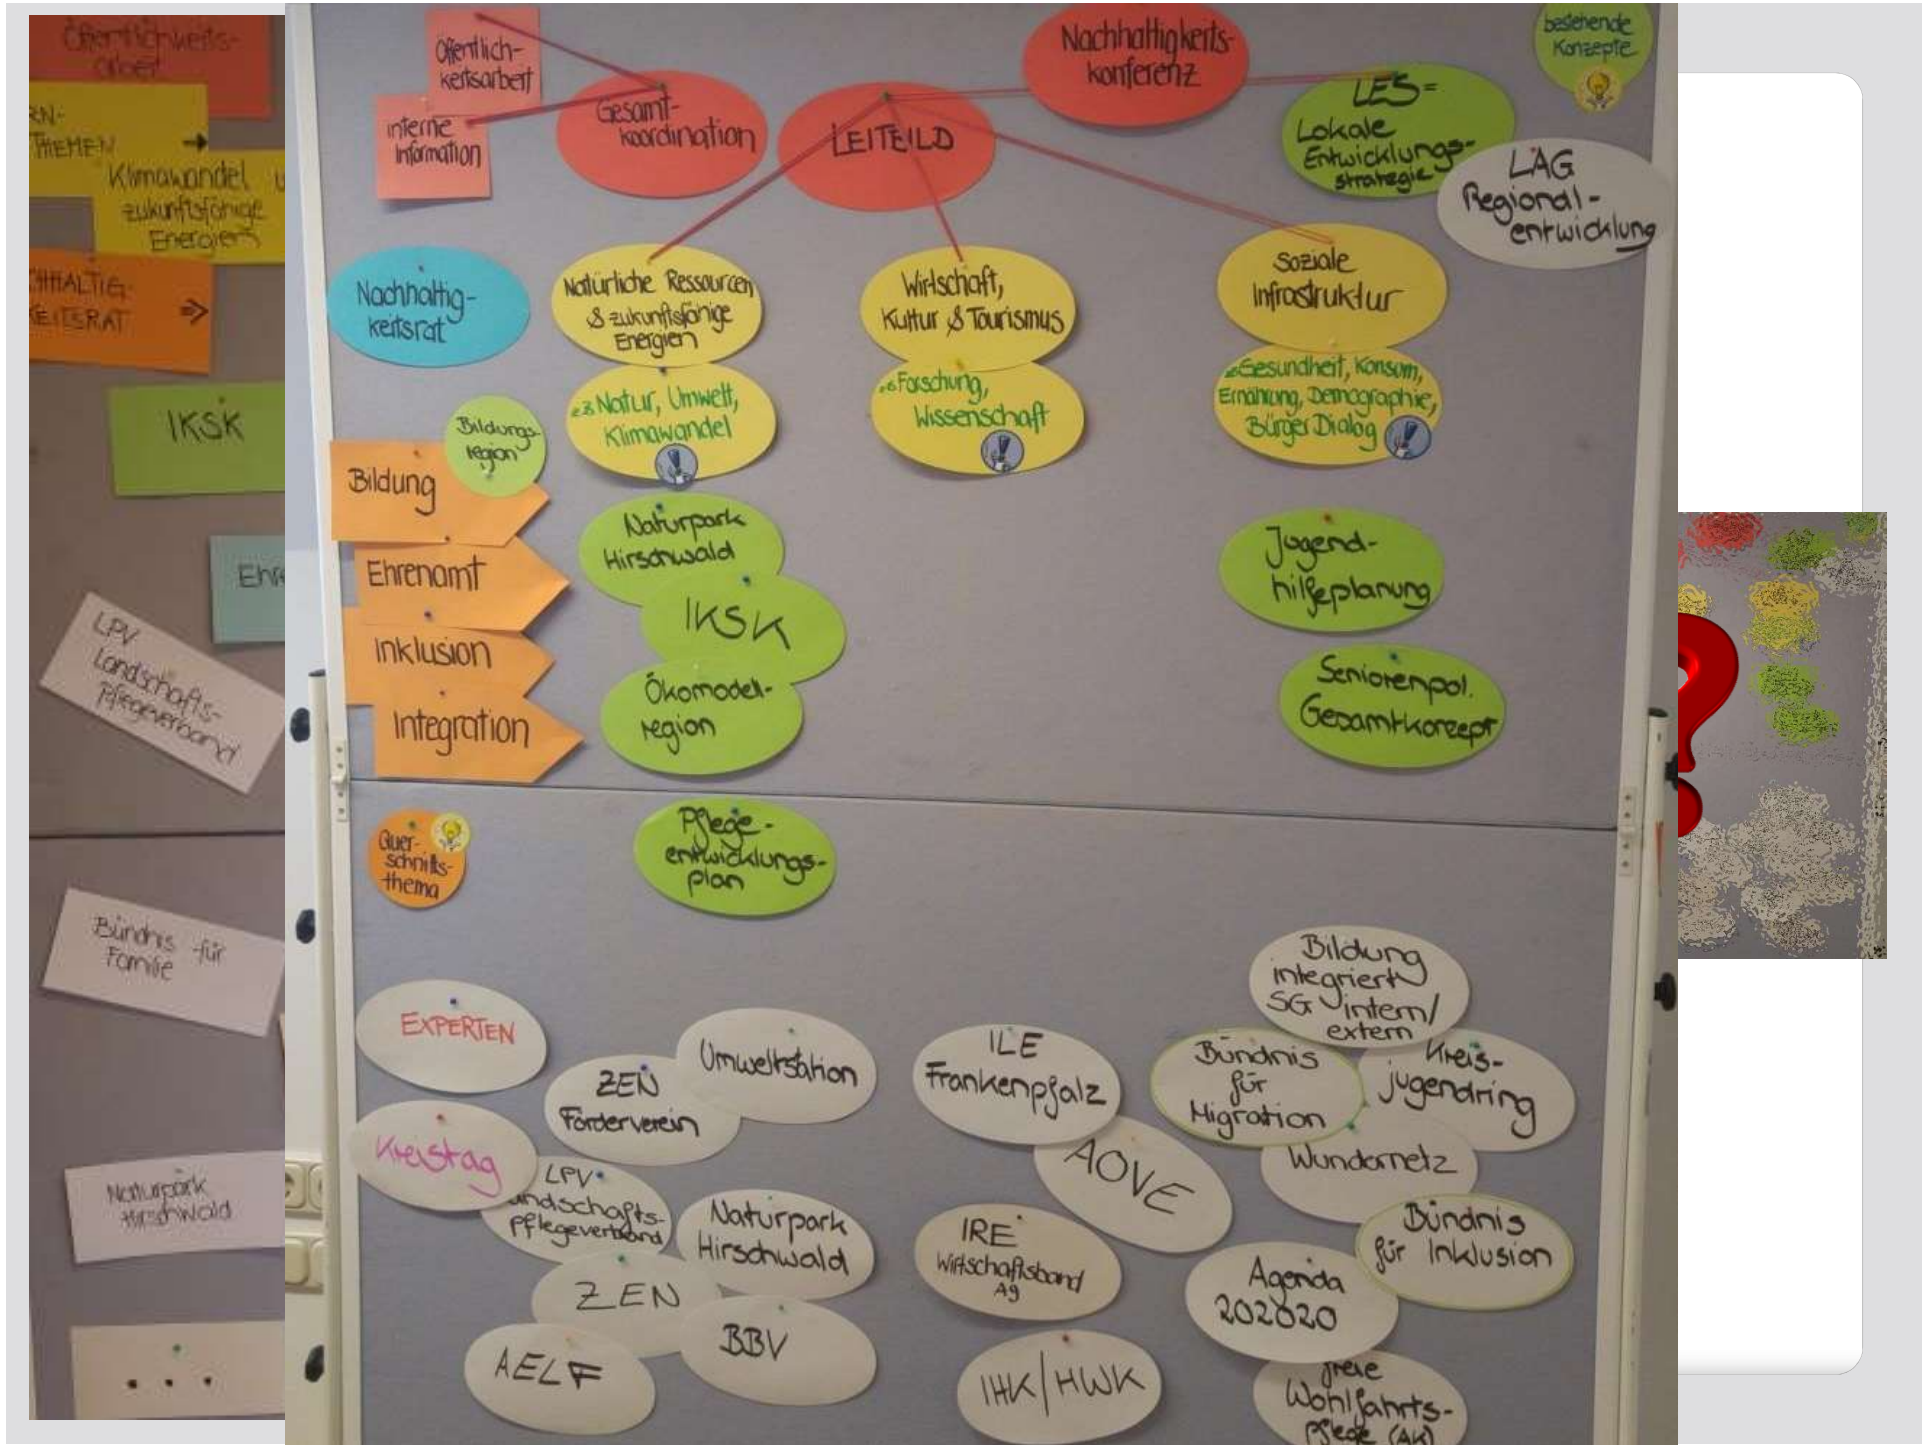 Öffentlichkeits-
arbeit
THEMEN
Klimawandel
zukunftsfähige
Energien
IKSK
LPV
Landschafts-
Pflegeverband
Bündnis für
Familie
Naturpark
Hirschwald
Öffentlich-
keitsarbeit
interne
Information
Gesamt-
koordination
LEITEILD
Nachhaltigkeits-
konferenz
bestehende
Konzepte
LES=
Lokale
Entwicklungs-
strategie
LAG
Regional-
entwicklung
Nachhaltig-
keitsrat
Natürliche Ressourcen
& zukunftsfähige
Energien
Wirtschaft,
Kultur & Tourismus
Soziale
Infrastruktur
z.B. Natur, Umwelt,
Klimawandel
z.B. Forschung,
Wissenschaft
Gesundheit, Konsum,
Ernährung, Demographie,
Bürger Dialog
Bildungs-
region
Bildung
Ehrenamt
Inklusion
Integration
Naturpark
Hirschwald
IKSK
Ökomodell-
region
Jugend-
hilfeplanung
Seniorenpol.
Gesamtkonzept
Quer-
schnitts-
thema
Pflege-
entwicklungs-
plan
EXPERTEN
Kreistag
ZEN
Förderverein
Umweltstation
LPV
Landschafts-
pflegeverband
Naturpark
Hirschwald
ZEN
BBV
AELF
ILE
Frankenpfalz
AOVE
IRE
Wirtschaftsband
A9
IHK/HWK
Bildung
integriert
SG intern/
extern
Bündnis
für
Migration
Kreis-
jugendring
Wundernetz
Bündnis
für Inklusion
Agenda
202020
freie
Wohlfahrts-
pflege (AK)